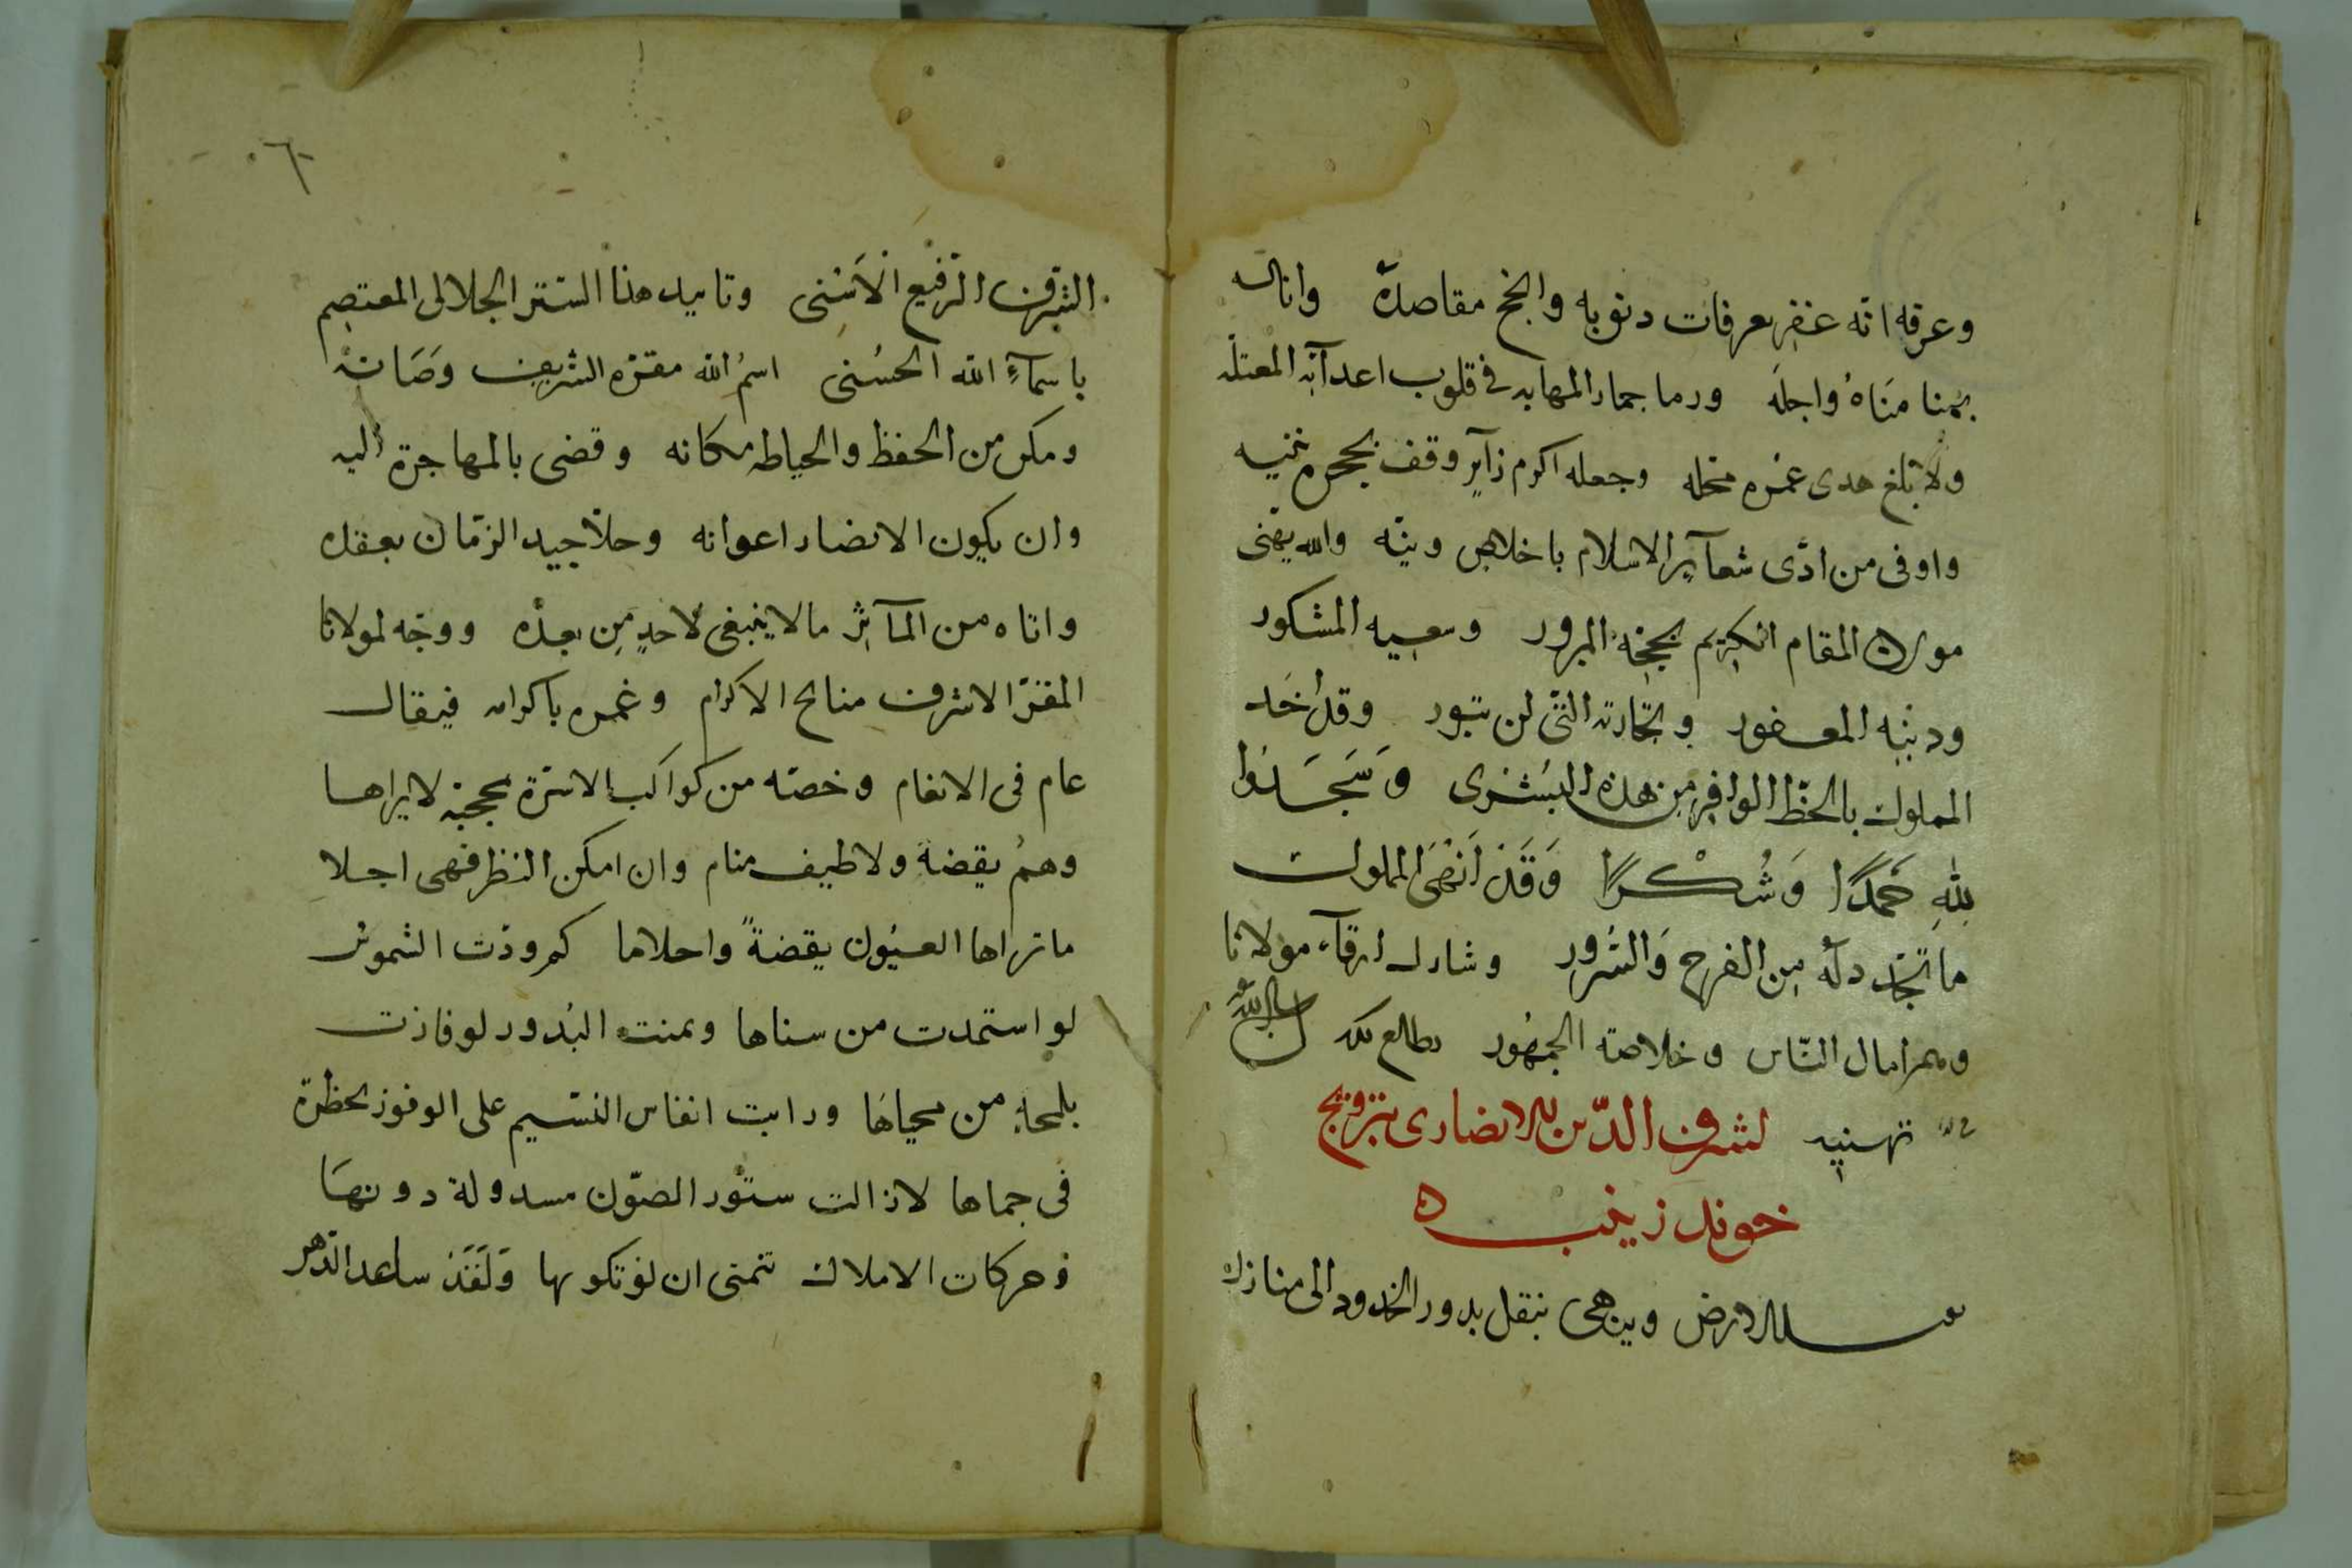 وعرفه انه غفر بعرفات دنوبه وانجح مقاصده واناله
بمنا مناه واجله ورما جمار المهابه فى قلوب اعدآئه المعتله
ولا تبلغ هدى عمره محله وجعله اكرم زآير وقف بحجره
واوفى من ادّى شعآير الاسلام باخلاص ونيّه والله يهنى
مولانا المقام الكريم بحجّه المبرور وسعيه المشكور
ودنبه المغفور وتجارته التى لن تبور وقد اخد
المملوك بالحظّ الوافر من هذه البُشرى وَسَجَدَوا
لله حَمدًا وَشُكْرًا وَقَد اَنهَى المملوك
ما تجدد له من الفرح وَالسُرور وشارك ارقآء مولانا
الناس وخلاصة الجمهُور
تهنيه لشرف الدّين الانصارى بتزويج
خوند زينب ه
الارض وينهى بنقل بدور الخدود الى منازل
٦
الشرف الرفيع الاَسْنى وتاييد هذا الستر الجلالى المعتصم
باسمآءِ الله الحُسنى اسمُ الله مقره الشريف وصَانه
ومكن من الحفظ والحياطه مكانه وقضى بالمهاجرة اليه
وان يكون الانصار اعوانه وحلّا جيد الزمان بعقده
واتاه من المآثر ما لا ينبغى لاحدٍ مِن بعده ووجّه لمولانا
المقرّ الاشرف منايح الاكرام وغمره باكرام فيقال
عام فى الانعام وخصّه من كواكب الاسرة بحجبة لا يراها
وهمُ يقضة ولا طيف منام وان امكن النظر فهى اجلا
ما تراها العيُون يقضةً واحلاما كم ودّت الشموس
لو استمدت من سناها وتمنت البُدور لو فازت
بلمحة من محياها ودابت انفاس النسيم على الوفوز بحظرة
فى حماها لا زالت ستور الصوّن مسدولة دونهَا
وحركات الاملاك تتمنى ان لو تكونها وَلَقَد ساعد الدّهر